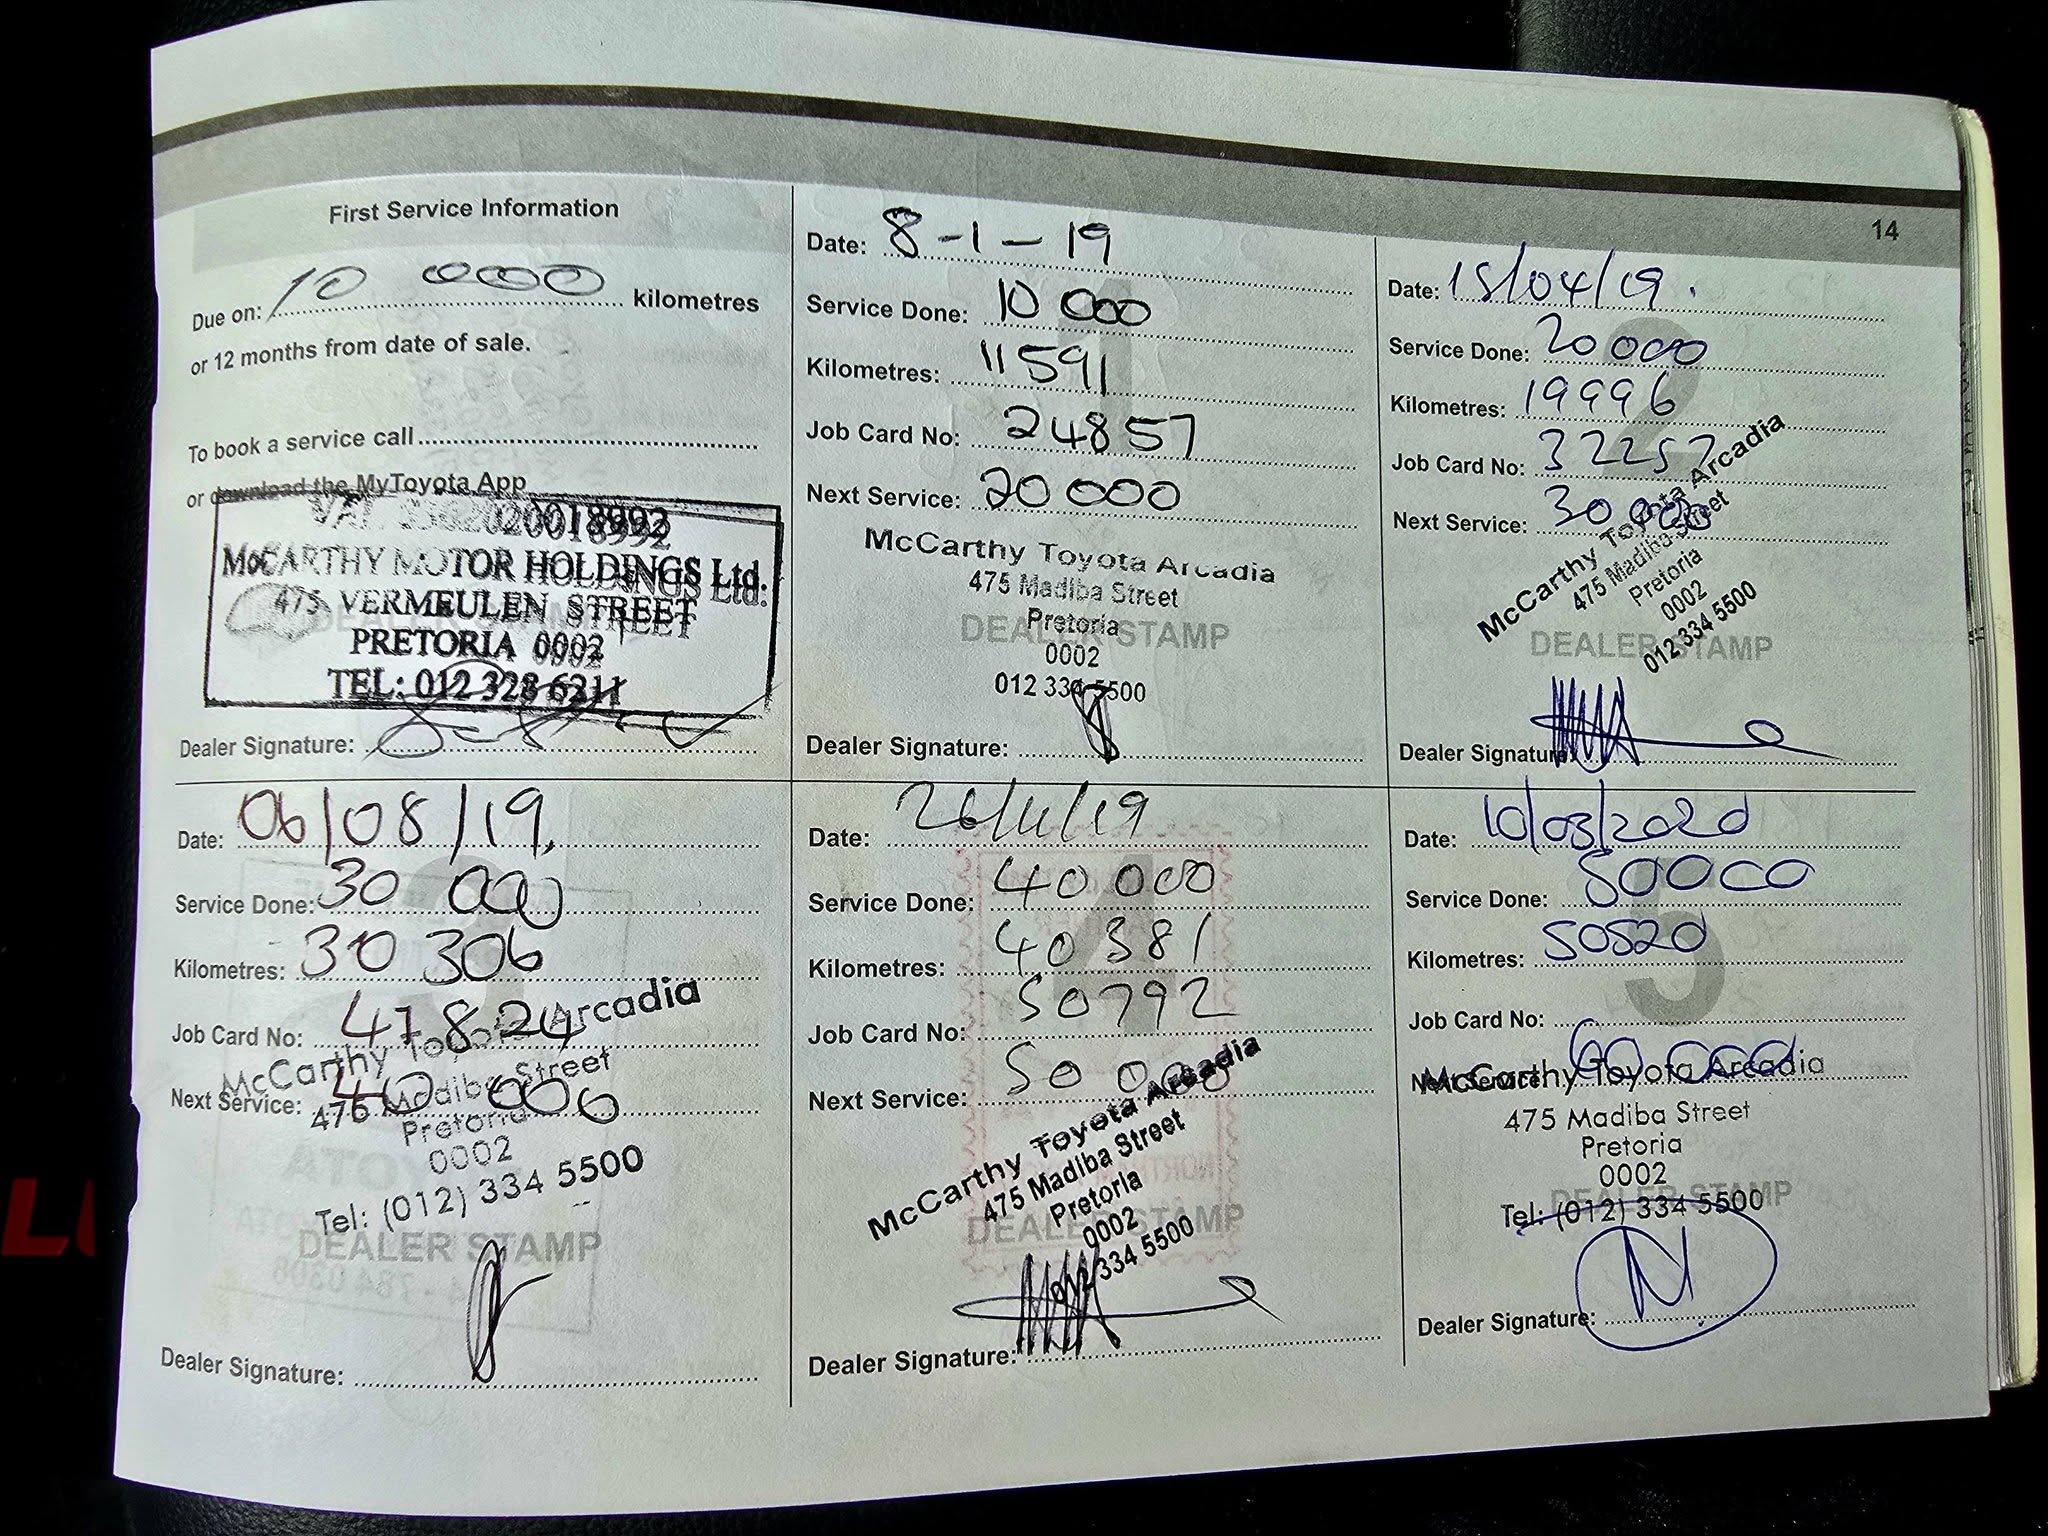 14
First Service Information
Due on: 10 000 kilometres
or 12 months from date of sale.
To book a service call
or download the MyToyota App
McCARTHY MOTOR HOLDINGS Ltd.
475 VERMEULEN STREET
PRETORIA 0002
TEL: 012 328 6211
Dealer Signature:
1
Date: 8-1-19
Service Done: 10 000
Kilometres: 11591
Job Card No: 24857
Next Service: 20 000
McCarthy Toyota Arcadia
475 Madiba Street
Pretoria
DEALER STAMP
0002
012 334 5500
Dealer Signature:
2
Date: 15/04/19.
Service Done: 20000
Kilometres: 19996
Job Card No: 32257
Next Service: 30000
McCarthy Toyota Arcadia
475 Madiba Street
Pretoria
0002
012 334 5500
DEALER STAMP
Dealer Signature:
3
Date: 06/08/19.
Service Done: 30 000
Kilometres: 30 306
Job Card No: 47824
Next Service: 40 000
McCarthy Toyota Arcadia
475 Madiba Street
Pretoria
0002
Tel: (012) 334 5500
DEALER STAMP
Dealer Signature:
4
Date: 26/11/19
Service Done: 40 000
Kilometres: 40 381
Job Card No: 50792
Next Service: 50 000
McCarthy Toyota Arcadia
475 Madiba Street
Pretoria
0002
012 334 5500
DEALER STAMP
Dealer Signature:
5
Date: 10/03/2020
Service Done: 50000
Kilometres: 50520
Job Card No:
Next Service: 60 000
McCarthy Toyota Arcadia
475 Madiba Street
Pretoria
0002
DEALER STAMP
Tel: (012) 334 5500
Dealer Signature: